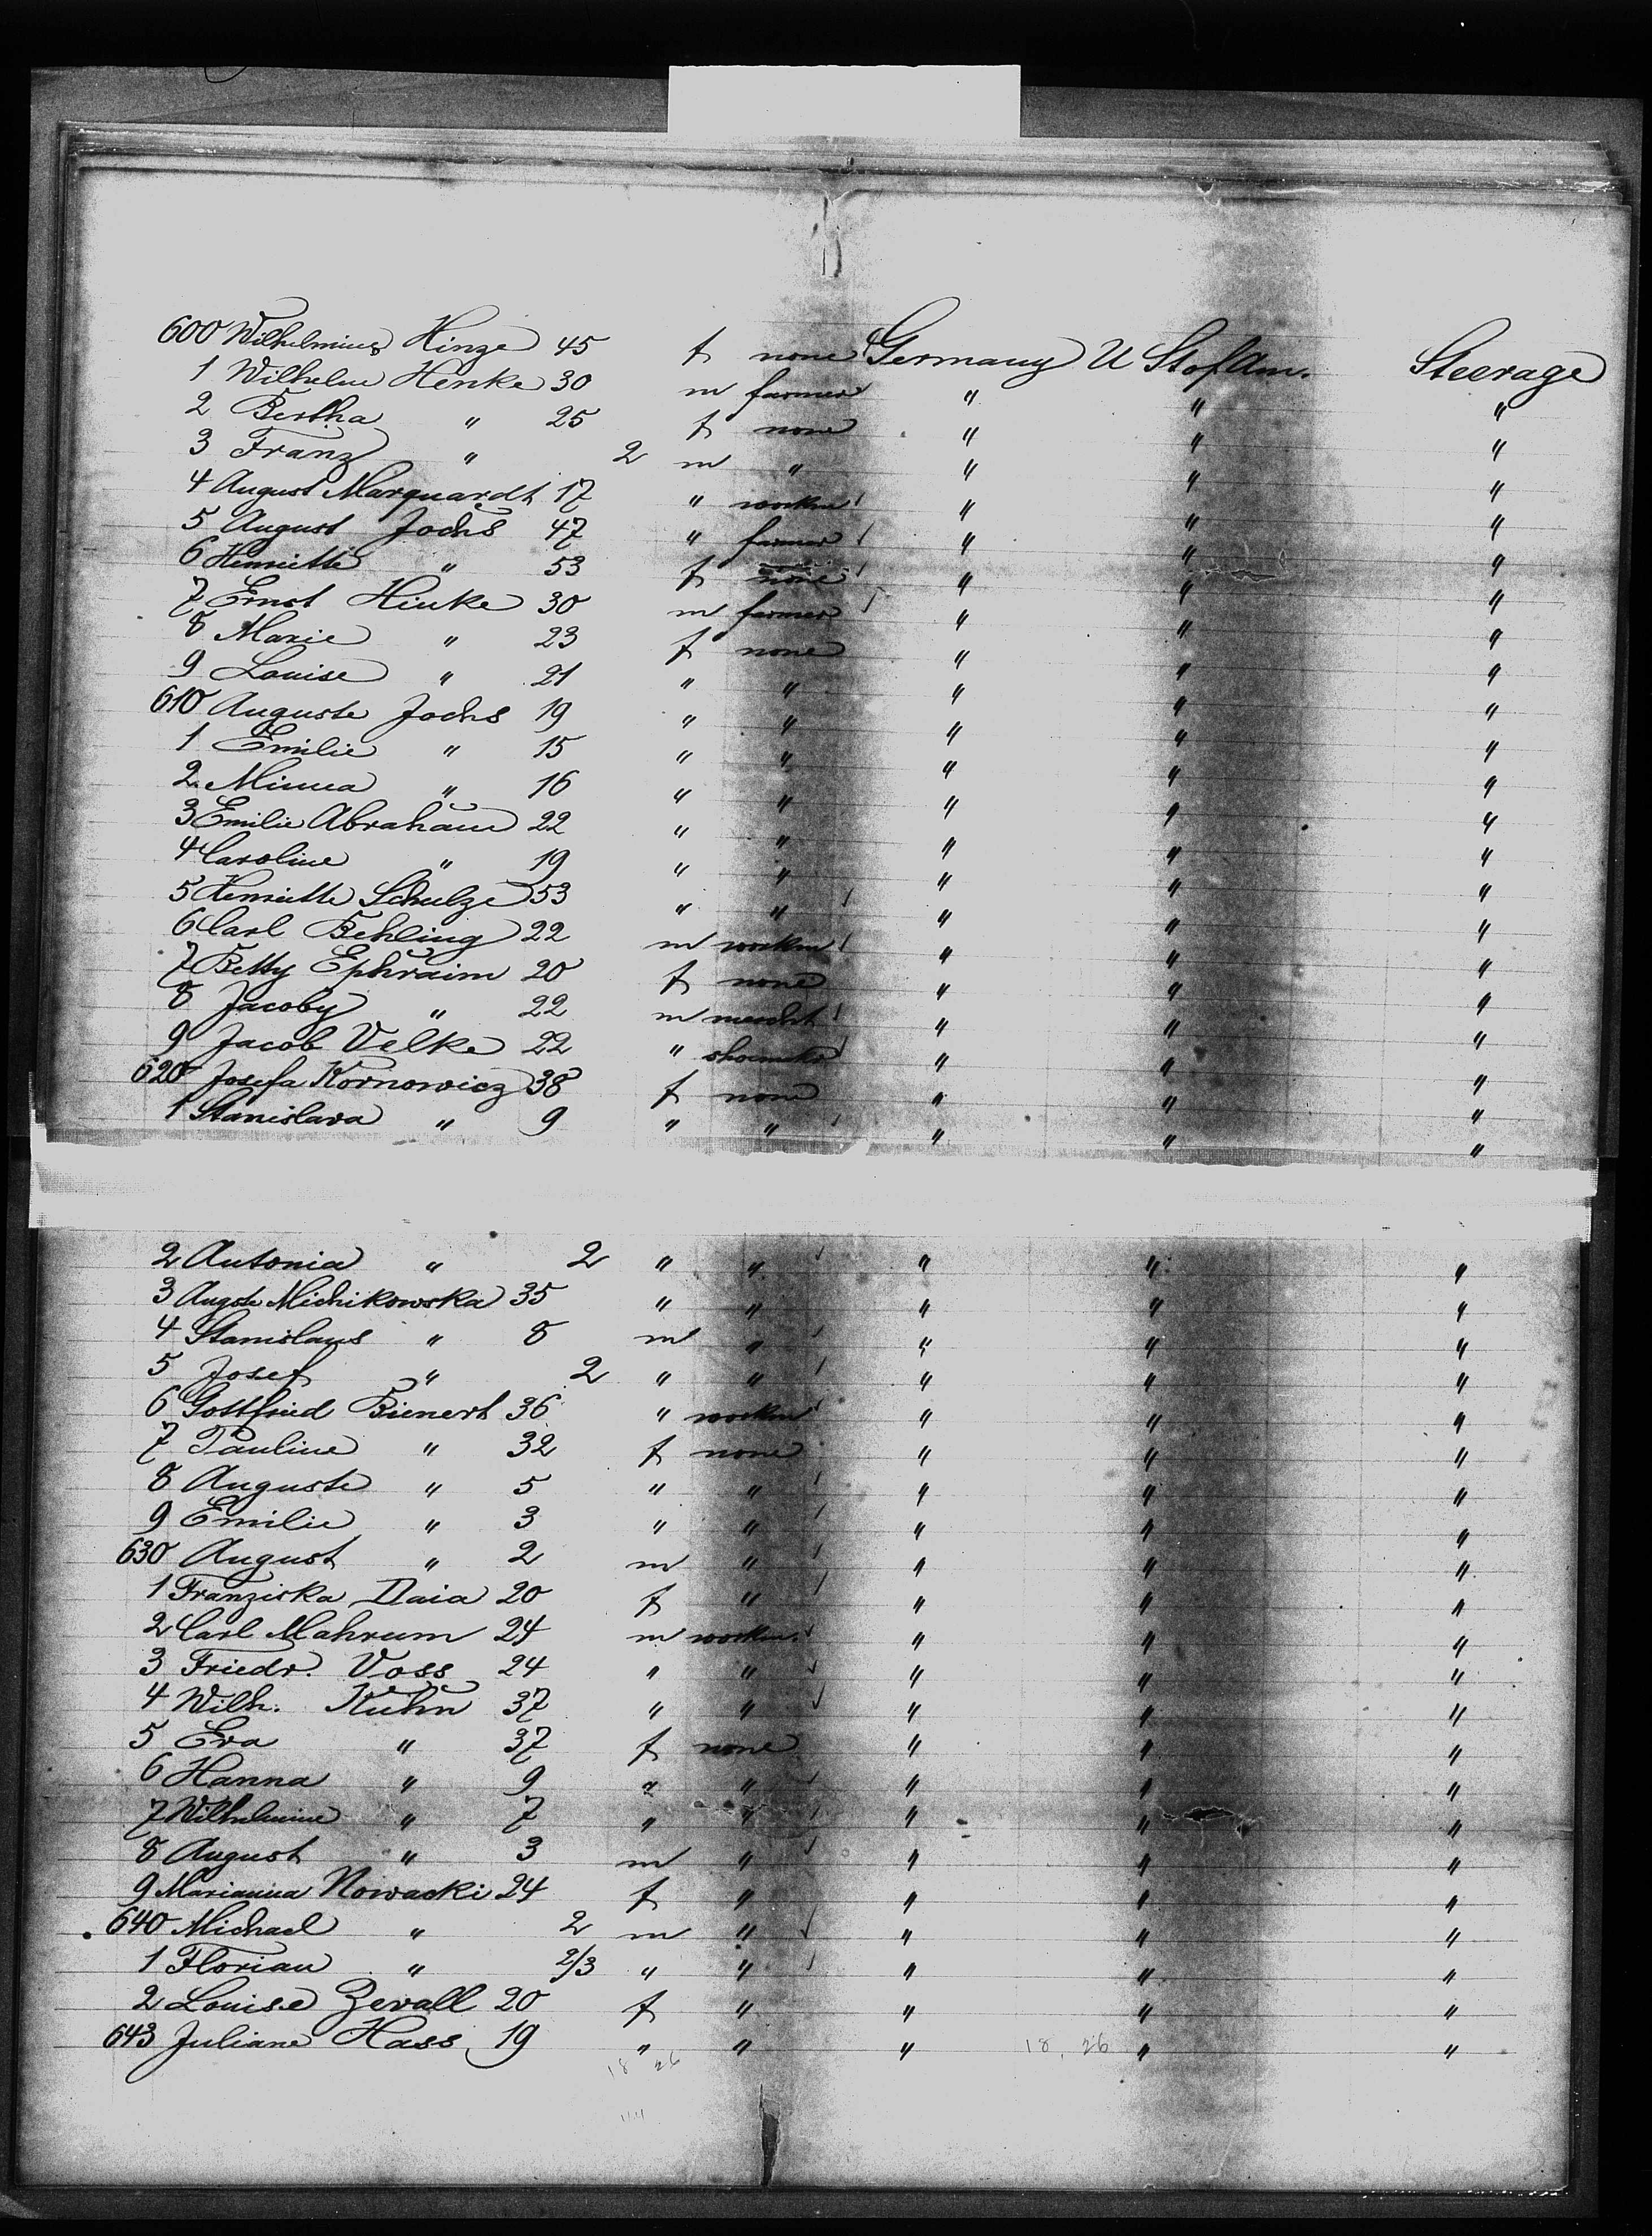 600 Wilhelmine Hinze 45 f none Germany U St of Am. Steerage
1 Wilhelm Henke 30 m farmer " " "
2 Bertha " 25 f none " " "
3 Franz " 2 m " " " "
4 August Marquardt 17 " workm " " "
5 August Jochs 47 " farmer " " "
6 Henriette " 53 f none " " "
7 Ernst Hinke 30 m farmer " " "
8 Marie " 23 f none " " "
9 Louise " 21 " " " " "
610 Auguste Jochs 19 " " " " "
1 Emilie " 15 " " " " "
2 Minna " 16 " " " " "
3 Emilie Abraham 22 " " " " "
4 Caroline " 19 " " " " "
5 Henriette Schulze 53 " " " " "
6 Carl Behling 22 m workm " " "
7 Betty Ephraim 20 f none " " "
8 Jacoby " 22 m mercht " " "
9 Jacob Velke 22 " shoemkr " " "
620 Josefa Kornowicz 38 f none " " "
1 Stanislava " 9 " " " " "
2 Antonia " 2 " " " " "
3 Augste Michikowska 35 " " " " "
4 Stanislaus " 8 m " " " "
5 Josef " 2 " " " " "
6 Gottfried Bienert 36 " workm " " "
7 Pauline " 32 f none " " "
8 Auguste " 5 " " " " "
9 Emilie " 3 " " " " "
630 August " 2 m " " " "
1 Franziska Daia 20 f " " " "
2 Carl Mahrum 24 m workm. " " "
3 Friedr. Voss 24 " " " " "
4 Wilh. Kuhn 37 " " " " "
5 Eva " 37 f none " " "
6 Hanna " 9 " " " " "
7 Wilhelmine " 7 " " " " "
8 August " 3 m " " " "
9 Marianna Nowacki 24 f " " " "
640 Michael " 2 m " " " "
1 Florian " 2/3 " " " " "
2 Louise Zevall 20 f " " " "
643 Juliane Hass 19 " " " 18, 26 " "
18 26